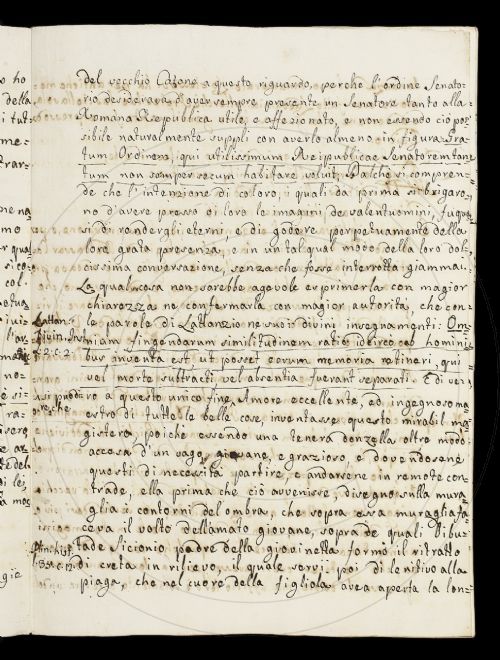 del vecchio Catone a questo riguardo, perche l'ordine Senato=
rio desiderava d'aver sempre presente un Senatore tanto alla
Romana Republica utile, e affezionato, e non essendo ciò pos=
sibile naturalmente supplì con averlo almeno in figura Gra=
tum Ordinem, qui utilissimum Reipublicae Senatorem tan=
tum non semper secum habitare voluit. Dalche si compren=
de che l'intenzione di coloro, i quali da prima si brigaro=
no d'avere presso di loro le imagini de valentuomini, fu qua=
si di rendergli eterni, e di godere perpetuamente della
loro grata presenza, e in un tal qual modo della loro dol=
cissima conversazione, senza che fosse interrotta giammai.
La qual cosa non sarebbe agevole esprimerla con magior
chiarezza ne confermarla con magior autorità, che con
Lattan. le parole di Lattanzio ne suoi divini insegnamenti: Om=
divin. Inst. niam fingendarum similitudinem ratio idcirco ab homini=
L. 2. c. 2. bus inventa est, ut posset eorum memoria retineri, qui
vel morte suttracti vel absentia fuerant separati. E di ve=
ro a questo unico fine Amore eccellente, ed ingegnoso ma=
estro di tutte le belle cose, inventasse questo mirabil ma=
gistero, poiche essendo una tenera donzella oltre modo
accesa d'un vago, giovane, e grazioso, e dovendosene
questi di necessità partire, e andarsene in remote con=
trade, ella prima che ciò avvenisse, disegnò sulla mura=
glia i contorni dell'ombra, che sopra essa muraglia fa=
ceva il volto dell'amato giovane, sopra de quali Dibu=
tade Sicionio padre della giovinetta formò il ritratto
di creta in rilievo, il quale servì poi di lenitivo alla
piaga, che nel cuore della figliola avea aperta la lon=